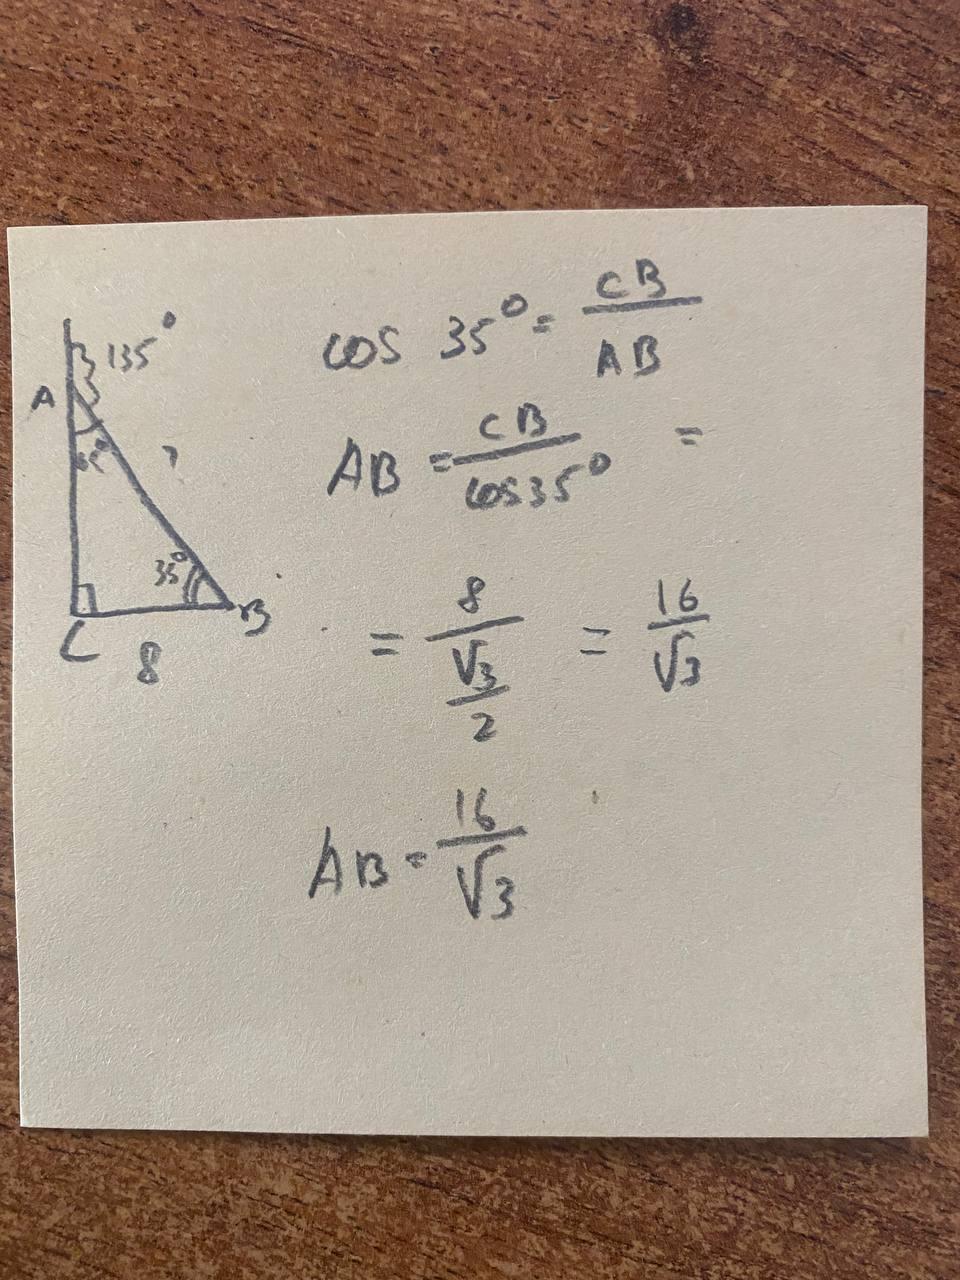 135°
A
?
35°
C
B
8
cos 35° = CB/AB
AB = CB/cos35° =
= 8/(√3/2) = 16/√3
AB = 16/√3